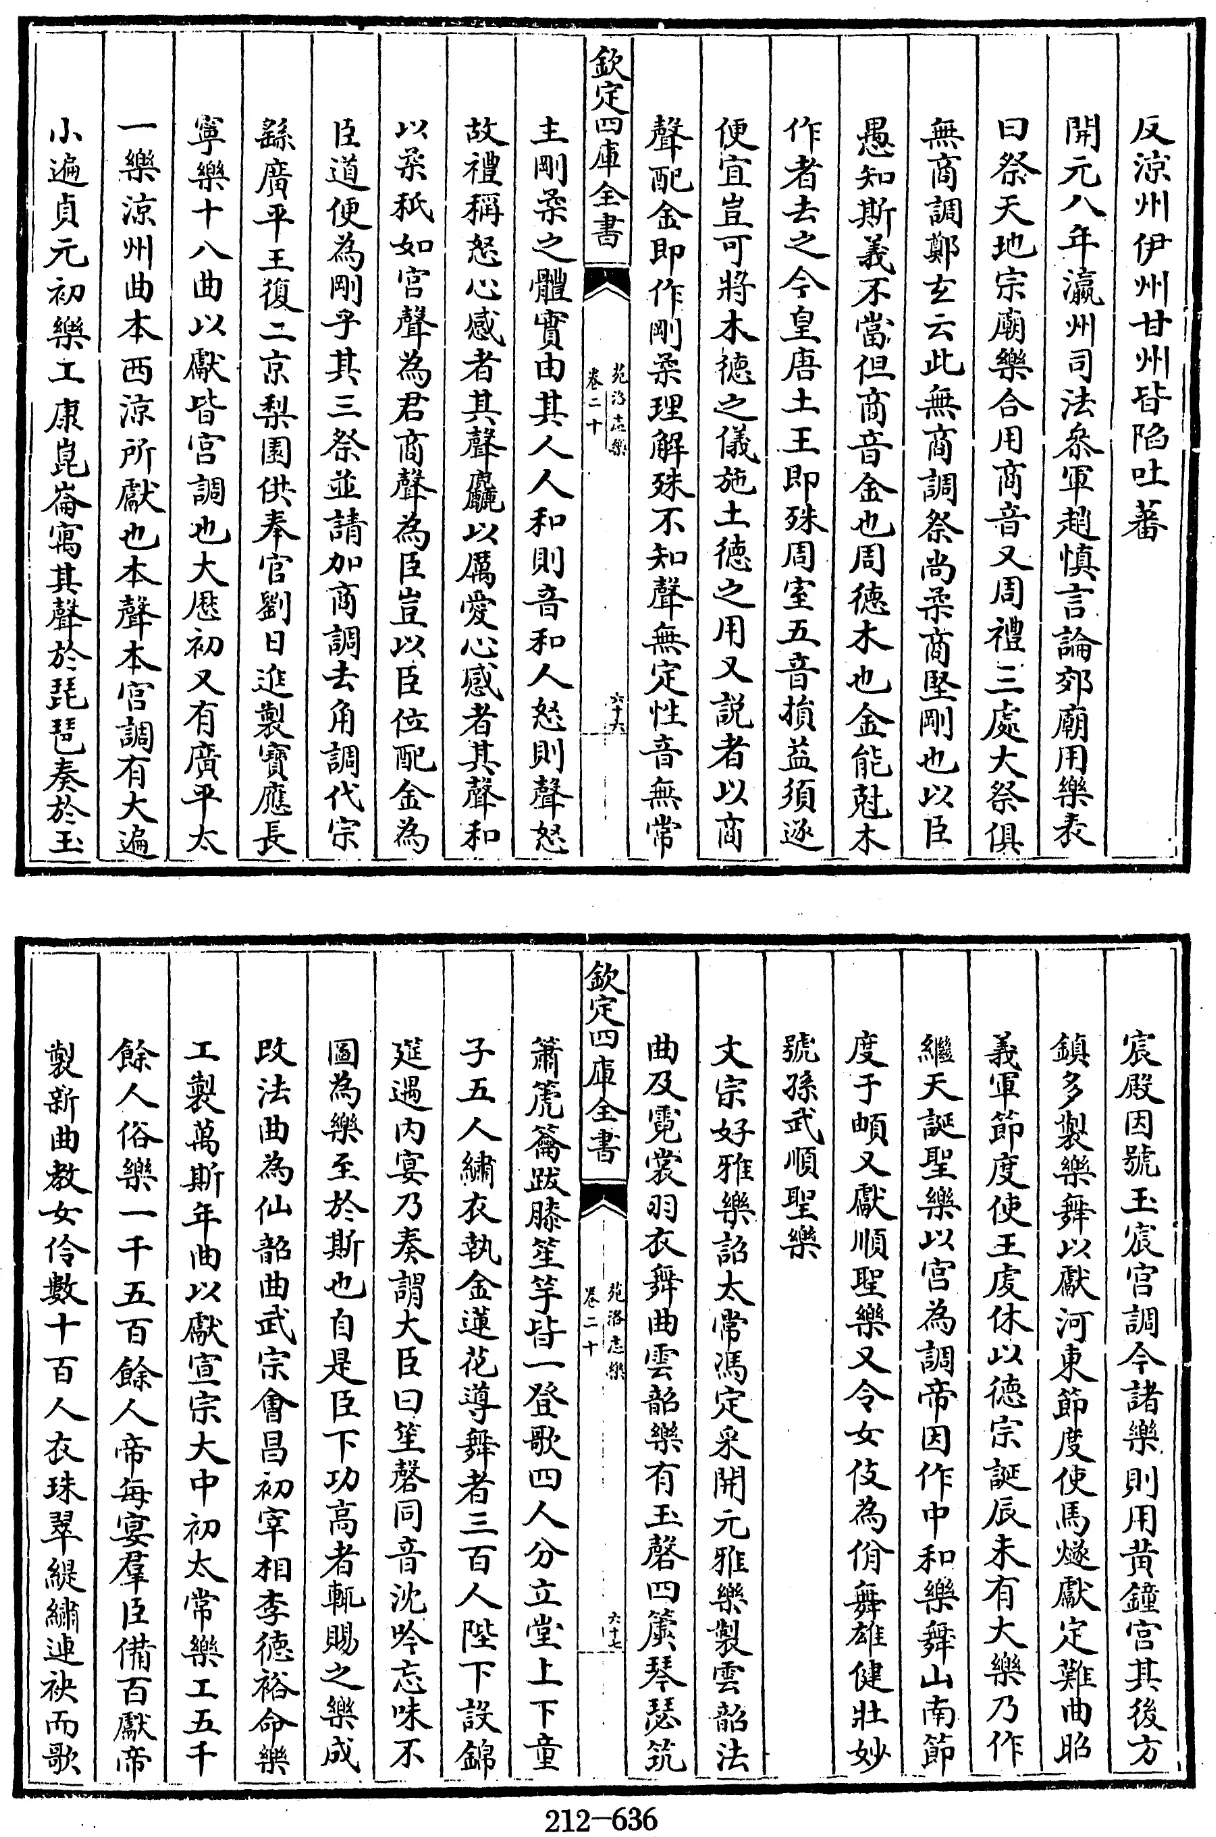 反涼州伊州甘州皆陷吐蕃
開元八年瀛州司法參軍趙慎言論郊廟用樂表
曰祭天地宗廟樂合用商音又周禮三處大祭俱
無商調鄭玄云此無商調祭尚柔商堅剛也以臣
愚知斯義不當但商音金也周德木也金能尅木
作者去之今皇唐土王即殊周室五音損益須逐
便宜豈可將木德之儀施土德之用又説者以商
聲配金即作剛柔理解殊不知聲無定性音無常
欽定四庫全書
苑洛志樂
卷二十
六十六
主剛柔之體實由其人人和則音和人怒則聲怒
故禮稱怒心感者其聲麤以厲愛心感者其聲和
以柔秖如宮聲為君商聲為臣豈以臣位配金為
臣道便為剛乎其三祭並請加商調去角調代宗
繇廣平王復二京梨園供奉官劉日進製寶應長
寧樂十八曲以獻皆宮調也大厯初又有廣平太
一樂涼州曲本西涼所獻也本聲本宮調有大遍
小遍貞元初樂工康崑崙寓其聲於琵琶奏於玉
宸殿因號玉宸宮調今諸樂則用黄鐘宮其後方
鎮多製樂舞以獻河東節度使馬燧獻定難曲昭
義軍節度使王虔休以德宗誕辰未有大樂乃作
繼天誕聖樂以宮為調帝因作中和樂舞山南節
度于頔又獻順聖樂又令女伎為佾舞雄健壯妙
號孫武順聖樂
文宗好雅樂詔太常馮定采開元雅樂製雲韶法
曲及霓裳羽衣舞曲雲韶樂有玉磬四簴琴瑟筑
欽定四庫全書
苑洛志樂
卷二十
六十七
簫箎籥跋膝笙竽皆一登歌四人分立堂上下童
子五人繡衣執金蓮花導舞者三百人陛下設錦
筵遇内宴乃奏謂大臣曰笙磬同音沈吟忘味不
圖為樂至於斯也自是臣下功高者輒賜之樂成
改法曲為仙韶曲武宗會昌初宰相李德裕命樂
工製萬斯年曲以獻宣宗大中初太常樂工五千
餘人俗樂一千五百餘人帝每宴羣臣備百獻帝
製新曲教女伶數十百人衣珠翠緹繡連袂而歌
212-636